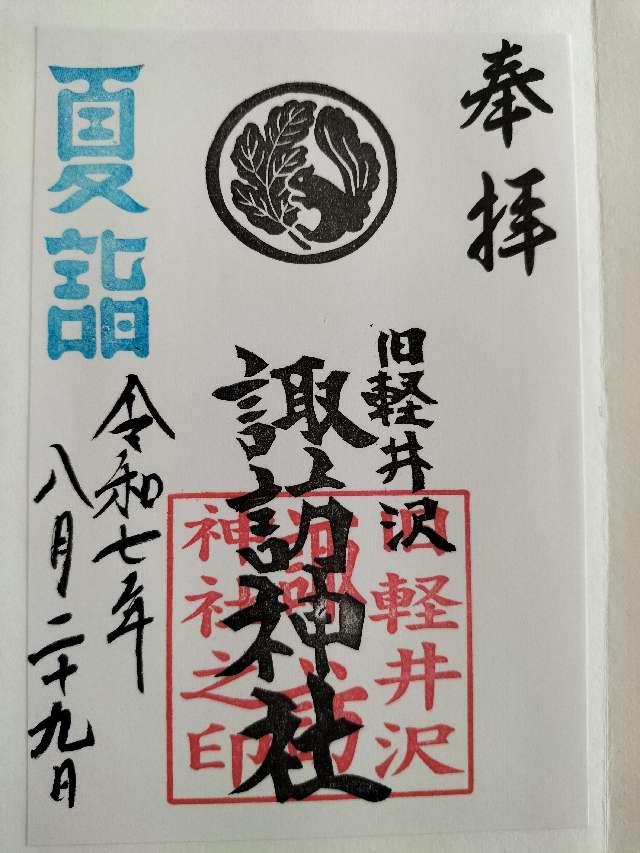 奉拝
旧軽井沢
諏訪神社
旧軽井沢
諏訪
神社之印
夏詣
令和七年
八月二十九日